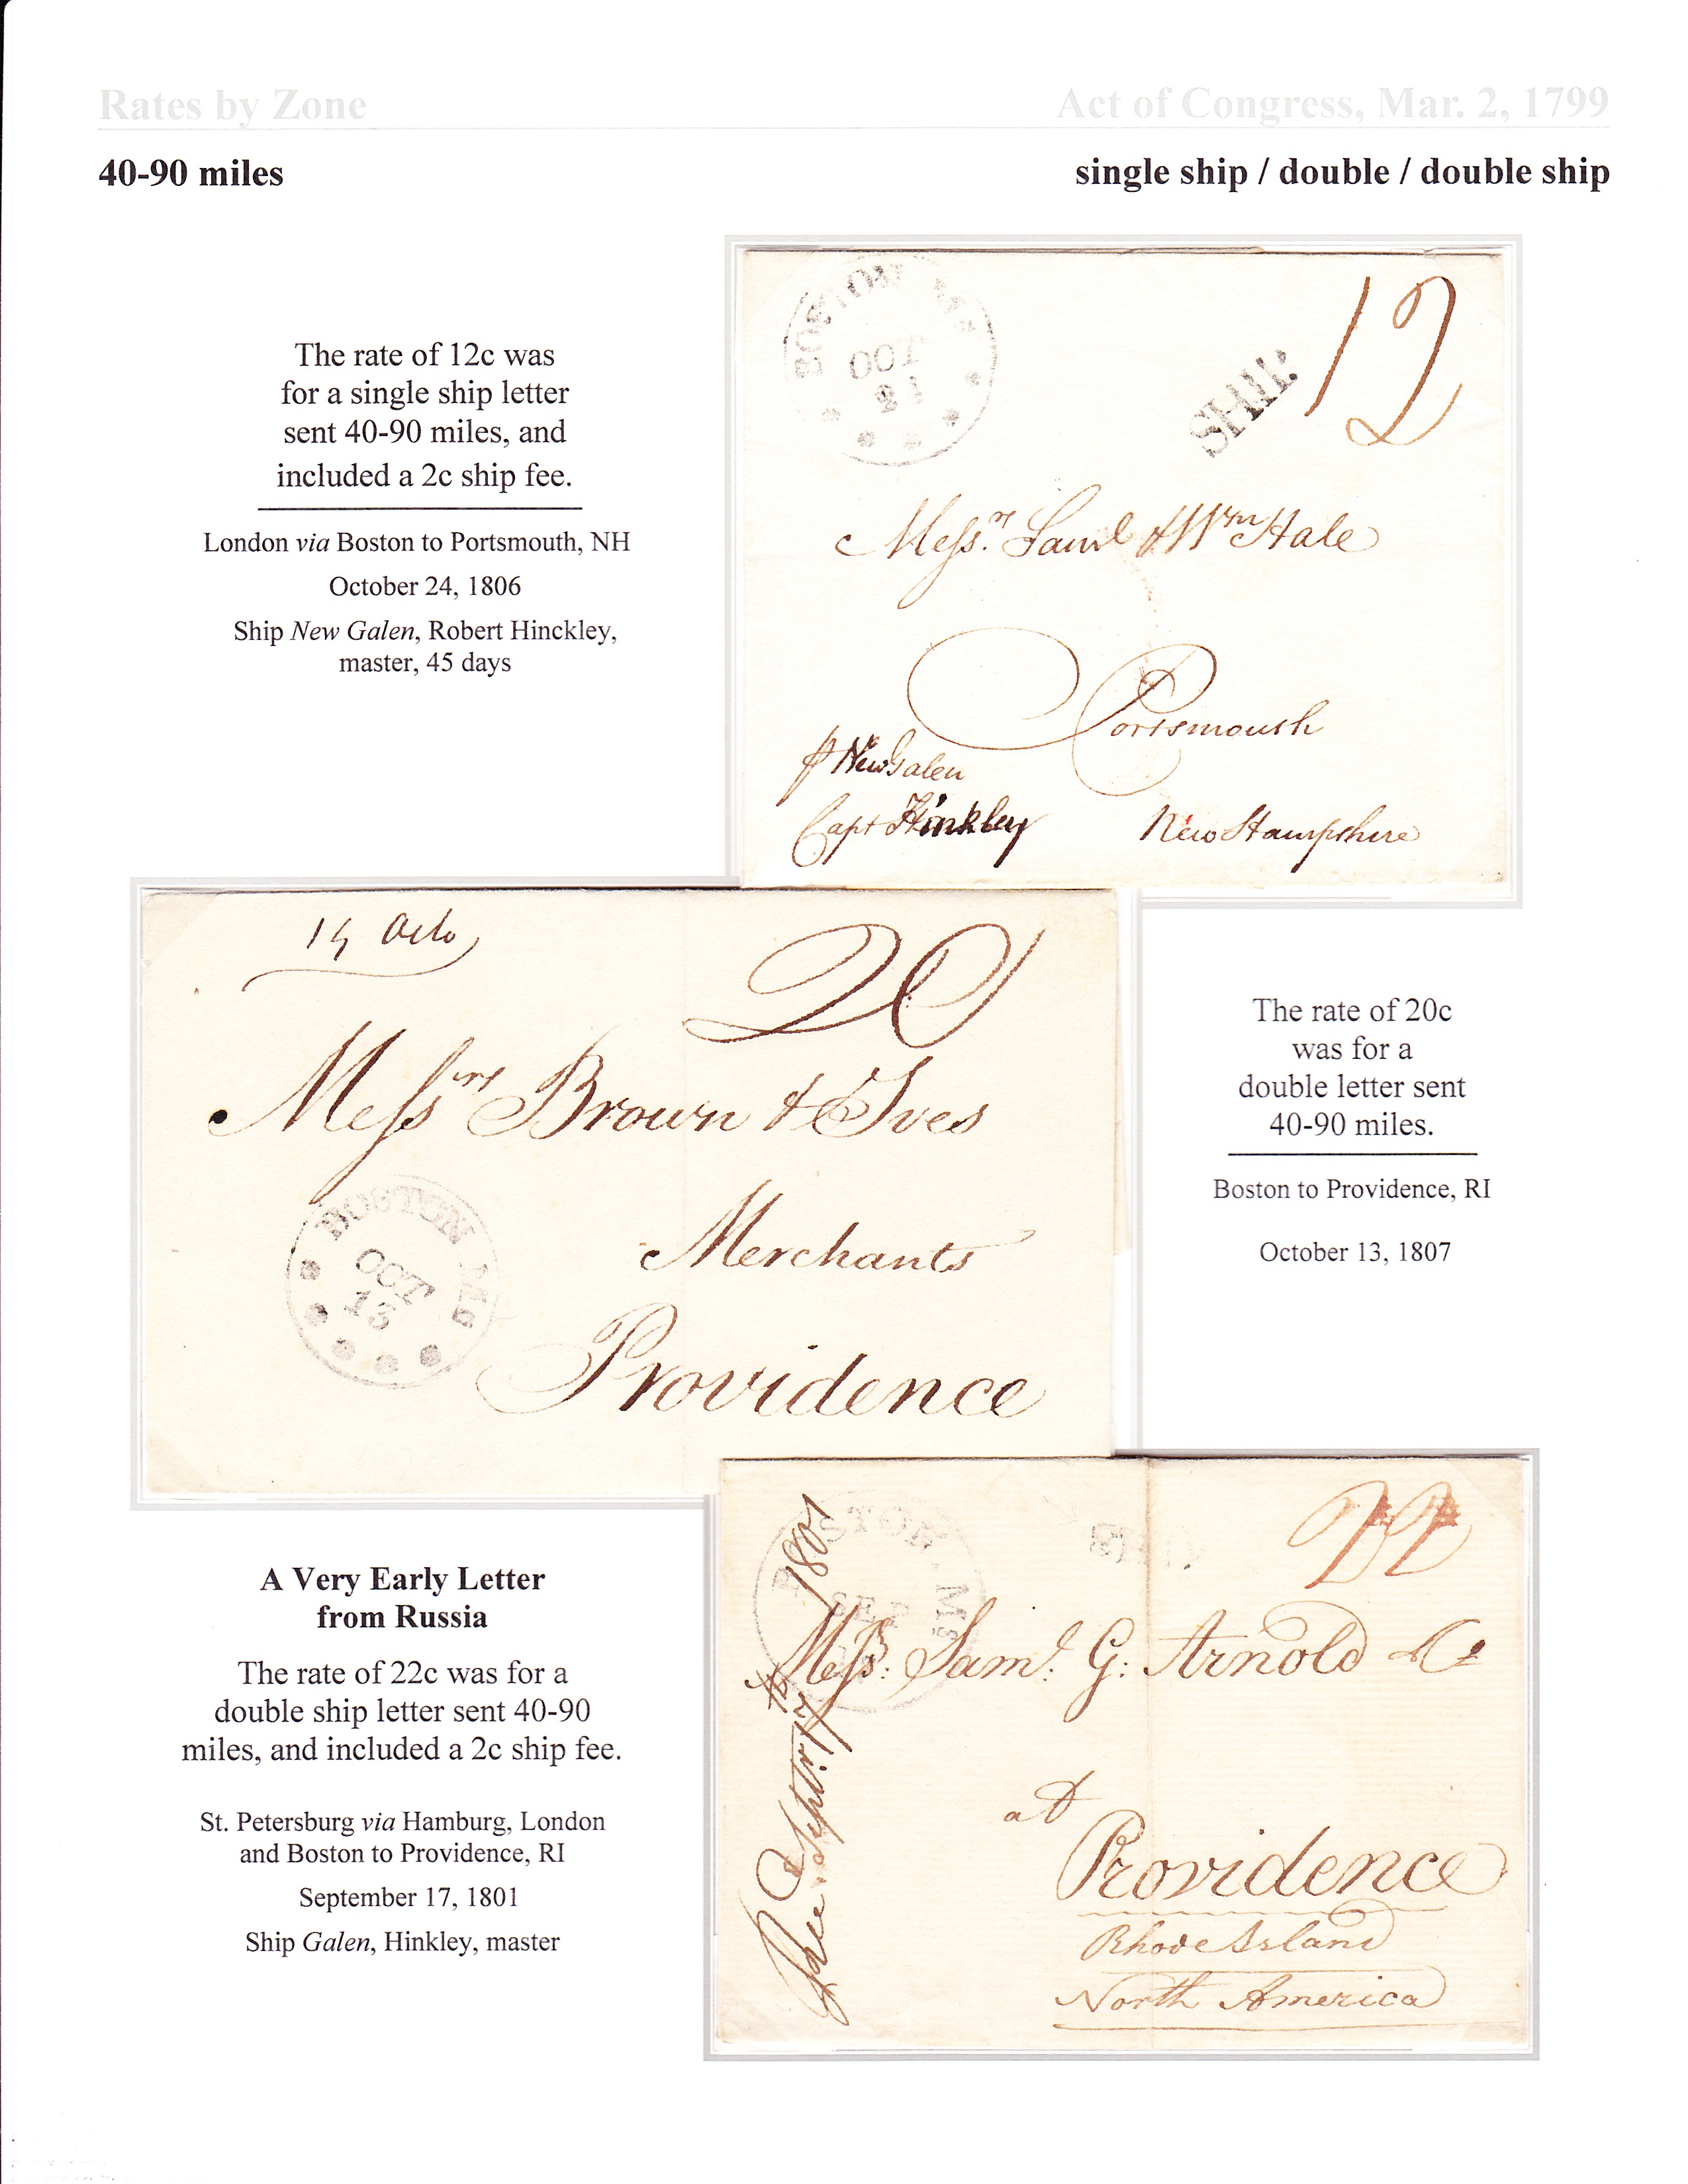 Rates by Zone
Act of Congress, Mar. 2, 1799
40-90 miles
single ship / double / double ship
The rate of 12c was
for a single ship letter
sent 40-90 miles, and
included a 2c ship fee.
London via Boston to Portsmouth, NH
October 24, 1806
Ship New Galen, Robert Hinckley,
master, 45 days
BOSTON Ms
OCT
SHIP
12
Messrs. Saml & Wm Hale
Portsmouth
New Galen
Capt Hinkley
New Hampshire
Octo
20
Messrs Brown & Ives
Merchants
Providence
BOSTON Ms
OCT
13
The rate of 20c
was for a
double letter sent
40-90 miles.
Boston to Providence, RI
October 13, 1807
A Very Early Letter
from Russia
The rate of 22c was for a
double ship letter sent 40-90
miles, and included a 2c ship fee.
St. Petersburg via Hamburg, London
and Boston to Providence, RI
September 17, 1801
Ship Galen, Hinkley, master
BOSTON. Ms
SEP
SHIP
22
Mess: Saml. G: Arnold & Co
at
Providence
Rhode Island
North America
Septbr. 17th 1801